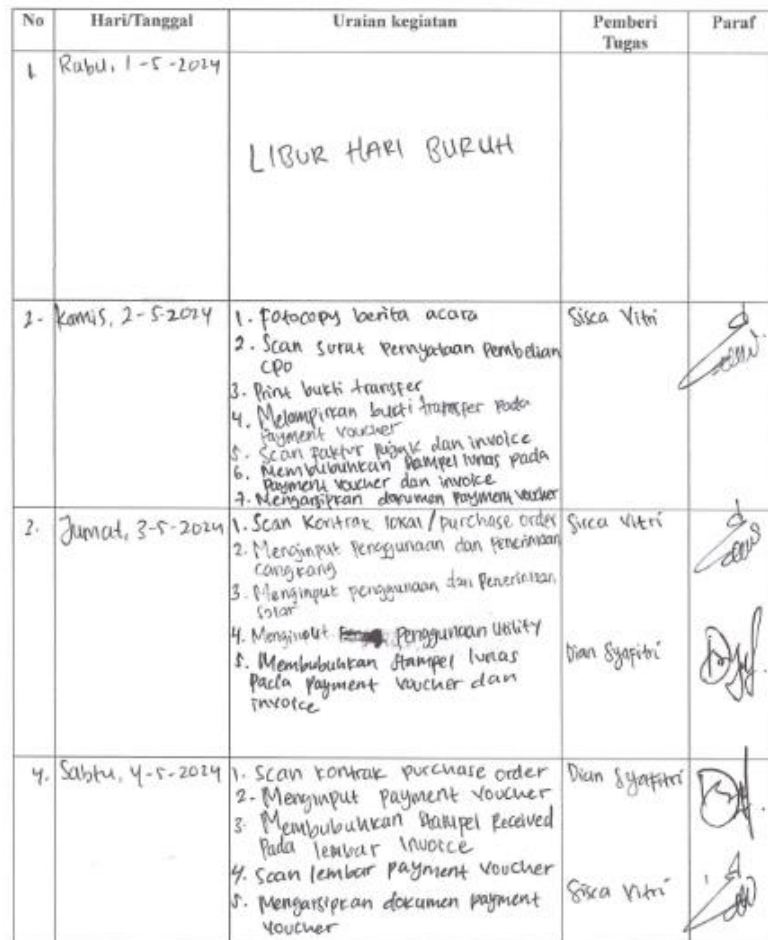 No Hari/Tanggal Uraian kegiatan Pemberi Tugas Paraf
1. Rabu, 1-5-2024
LIBUR HARI BURUH
2. Kamis, 2-5-2024
1. Fotocopy berita acara
2. Scan surat Pernyataan Pembelian
CPO
3. Print bukti transfer
4. Melampirkan bukti transfer Pada
Payment voucher
5. Scan Faktur Pajak dan invoice
6. Membubuhkan Stampel lunas pada
Payment voucher dan invoice
7. Mengarsipkan dokumen Payment voucher
Sisca Vitri
3. Jumat, 3-5-2024
1. Scan Kontrak lokal/purchase order
2. Menginput Penggunaan dan Penerimaan
Cangkang
3. Menginput penggunaan dan Penerimaan
Solar
4. Menginput Penggunaan Utility
5. Membubuhkan Stampel lunas
Pada Payment voucher dan
invoice
Sisca Vitri
Dian Syafitri
4. Sabtu, 4-5-2024
1. Scan kontrak purchase order
2. Menginput payment voucher
3. Membubuhkan Stampel Received
Pada lembar Invoice
4. Scan lembar payment voucher
5. Mengarsipkan dokumen payment
voucher
Dian Syafitri
Sisca Vitri